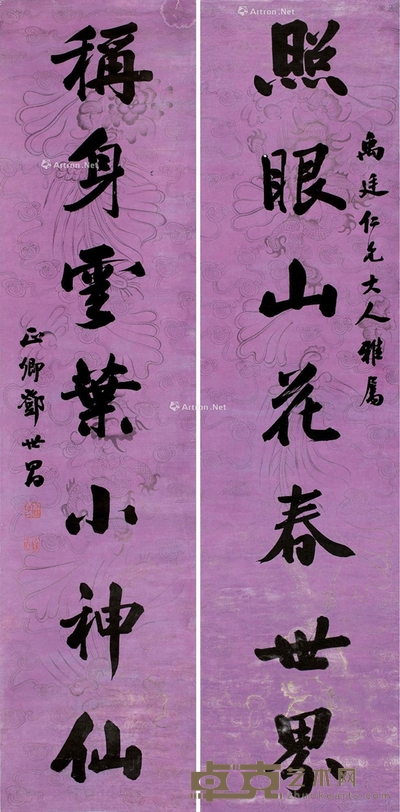 照眼山花春世界
禹廷仁兄大人雅属
稱身雲葉小神仙
正卿鄧世昌
Artron.Net
Artron.Net
Artron.Net
Artron.Net